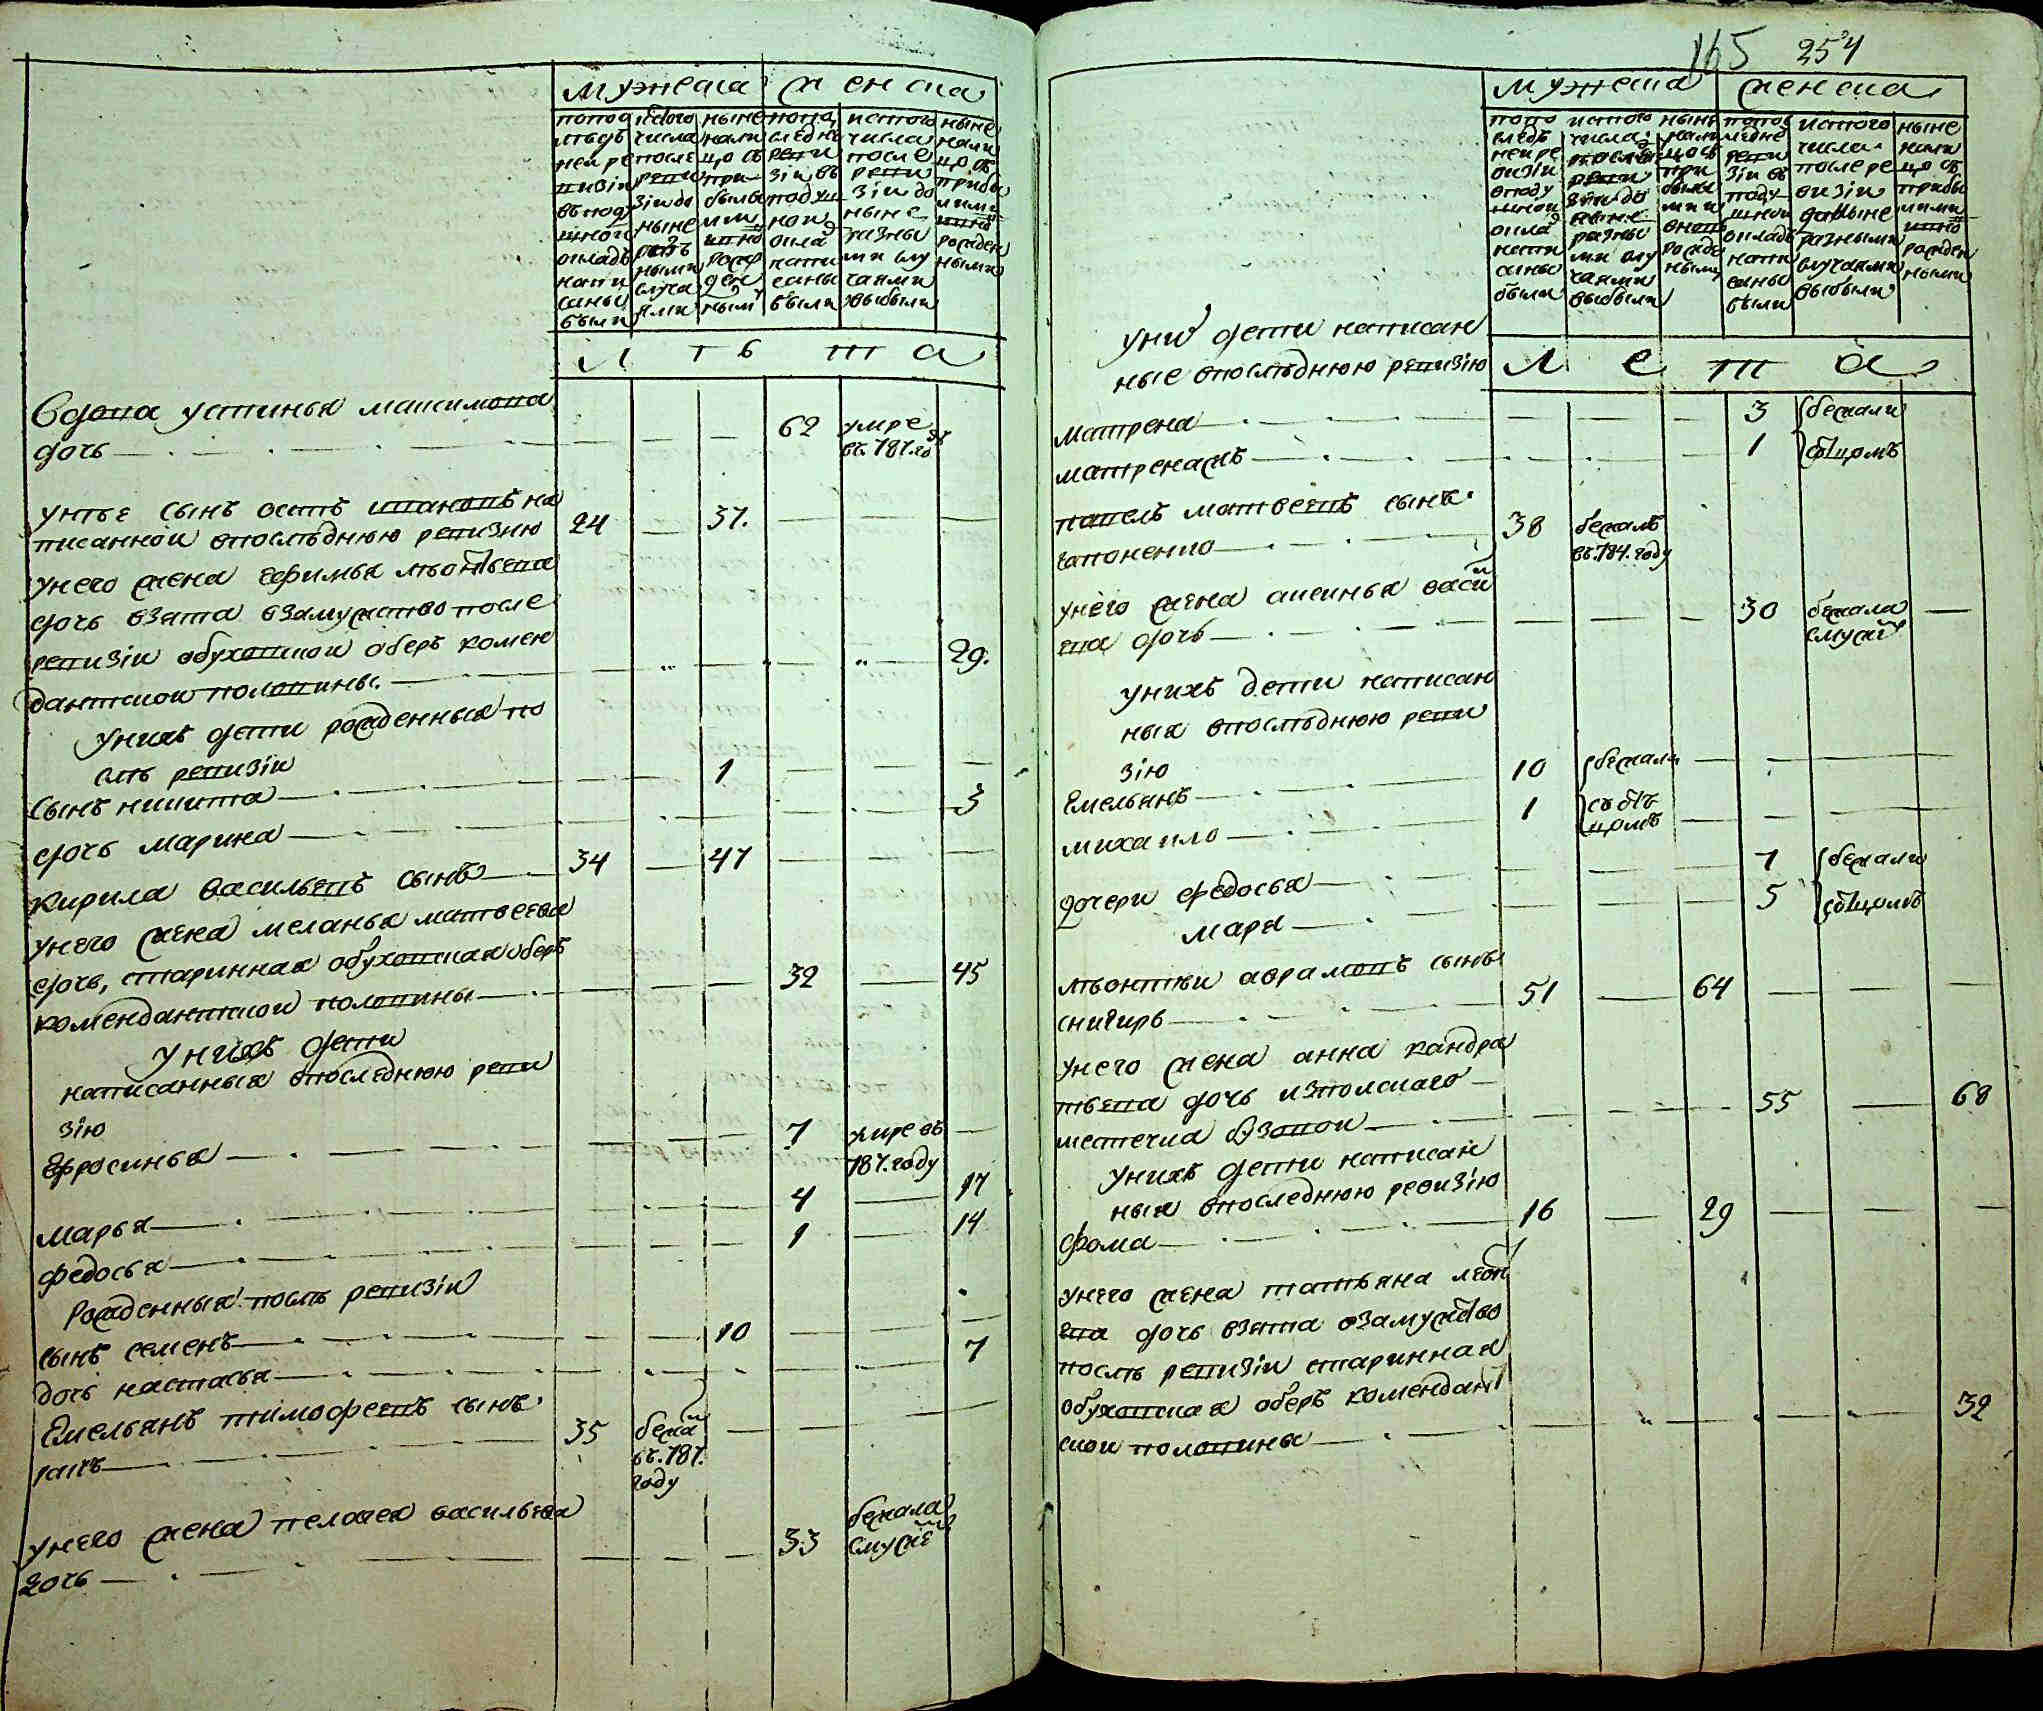 мужеска женска
попо
следъ
ней ре
визiи
въ поду
шной
окладъ
напи
саны
были
истого
числа
после
реви
зiи до
ныне
раз
ными
случа
ями
ныне
нали
цо съ
при
былы
ми
вно
рожд
ден
ными
попо
следне
реви
зiи въ
подуш
ной
окла
напи
саны
были
истого
числа
после
реви
зiи до
ныне
разны
ми слу
чаями
выбыли
ныне
нали
цо съ
прибы
лыми
вно
рожден
ными
л ѣ т а
вдова устинья максимова
дочь 62 умре въ 787 го
унее сынъ осипъ ивановъ на
писанной впослѣднюю ревизию 24 37.
унего жена ефимья лвонтьева
дочь взята взамужство после
ревизiи обуховской оберъ комен
дантской половины. 29.
унихъ дети рожденныя по
слѣ ревизiи
сынъ никита 1
дочь марина 3
кирила васильевъ сынъ 34 47
унего жена меланья матвеева
дочь, старинная обуховская оберъ
комендантской половины 32 45
унихъ дети
написанныя впоследнюю реви
зiю
Ефросинья 7 умре въ 787. году
марья 4 17
федосья 1 14
рожденныя послѣ ревизiи
сынъ семенъ 10
дочь настасья 7
Емельянъ тимофеевъ сынъ
35 бежа въ. 787. году
унего жена пелагея васильева
дочь 33 бежала смуже
165 254
мужеска женска
попо
следъ
ней ре
визiи
вподу
шной
окла
напи
саны
были
истого
числа
после
реви
зiи до
ныне
разны
ми слу
чаями
выбыли
ныне
нали
цо съ
при
былы
ми и
вно
рожде
ными
попо
следне
реви
зiи въ
поду
шной
окладъ
напи
саны
были
истого
числа
после ре
визiи
доныне
разными
случаями
выбыли
ныне
нали
цо съ
прибы
лыми
вно
рожден
ными
л е т а
уних дети написан
ные впослѣднюю ревизiю
матрена 3 бежали
матрена жъ 1 сотцомъ
павелъ матвеевъ сынъ
гапоненко 38 бежалъ въ. 784. году
унего жена аксинья васи
ева дочь 30 бежала смуже
унихъ дети написан
ныя впослѣднюю реви
зiю
Емельянъ 10 бежали
михаило 1 съ отъцомъ
дочери федосья 7 бежали
маря 5 сотцомъ
лѣонтѣи аврамовъ сынъ
снигирь 51 64
унего жена анна кандра
тьева дочь изполскаго
местечка бузовой 55 68
унихъ дети написан
ныя впоследнюю ревизiю
фома 16 29
унего жена татьяна леон
ева дочь взята взамужство
послѣ ревизiи старинная
обуховская оберъ комендант
ской половины 32